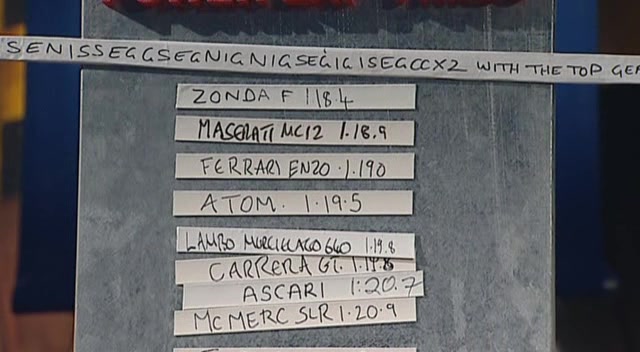 SENISSEGGSEGNIGNIGSEGIGISEGCCX2 WITH THE TOP GEA
ZONDA F 1 18.4
MASERATI MC12 1.18.9
FERRARI ENZO .1.190
ATOM. 1.19.5
LAMBO MURCIELAGO 640 1.19.8
CARRERA GT. 1.19.8
ASCARI 1:20.7
MC MERC SLR 1.20.9